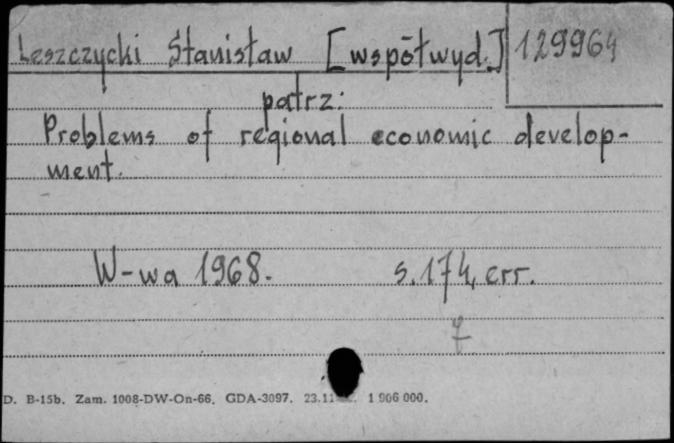 Leszczycki Stanisław [współwyd.] 129964
patrz:
Problems of regional economic develop-
ment.
W-wa 1968. s. 174, err.
7
D. B-15b. Zam. 1008-DW-On-66. GDA-3097. 23.11 1 906 000.